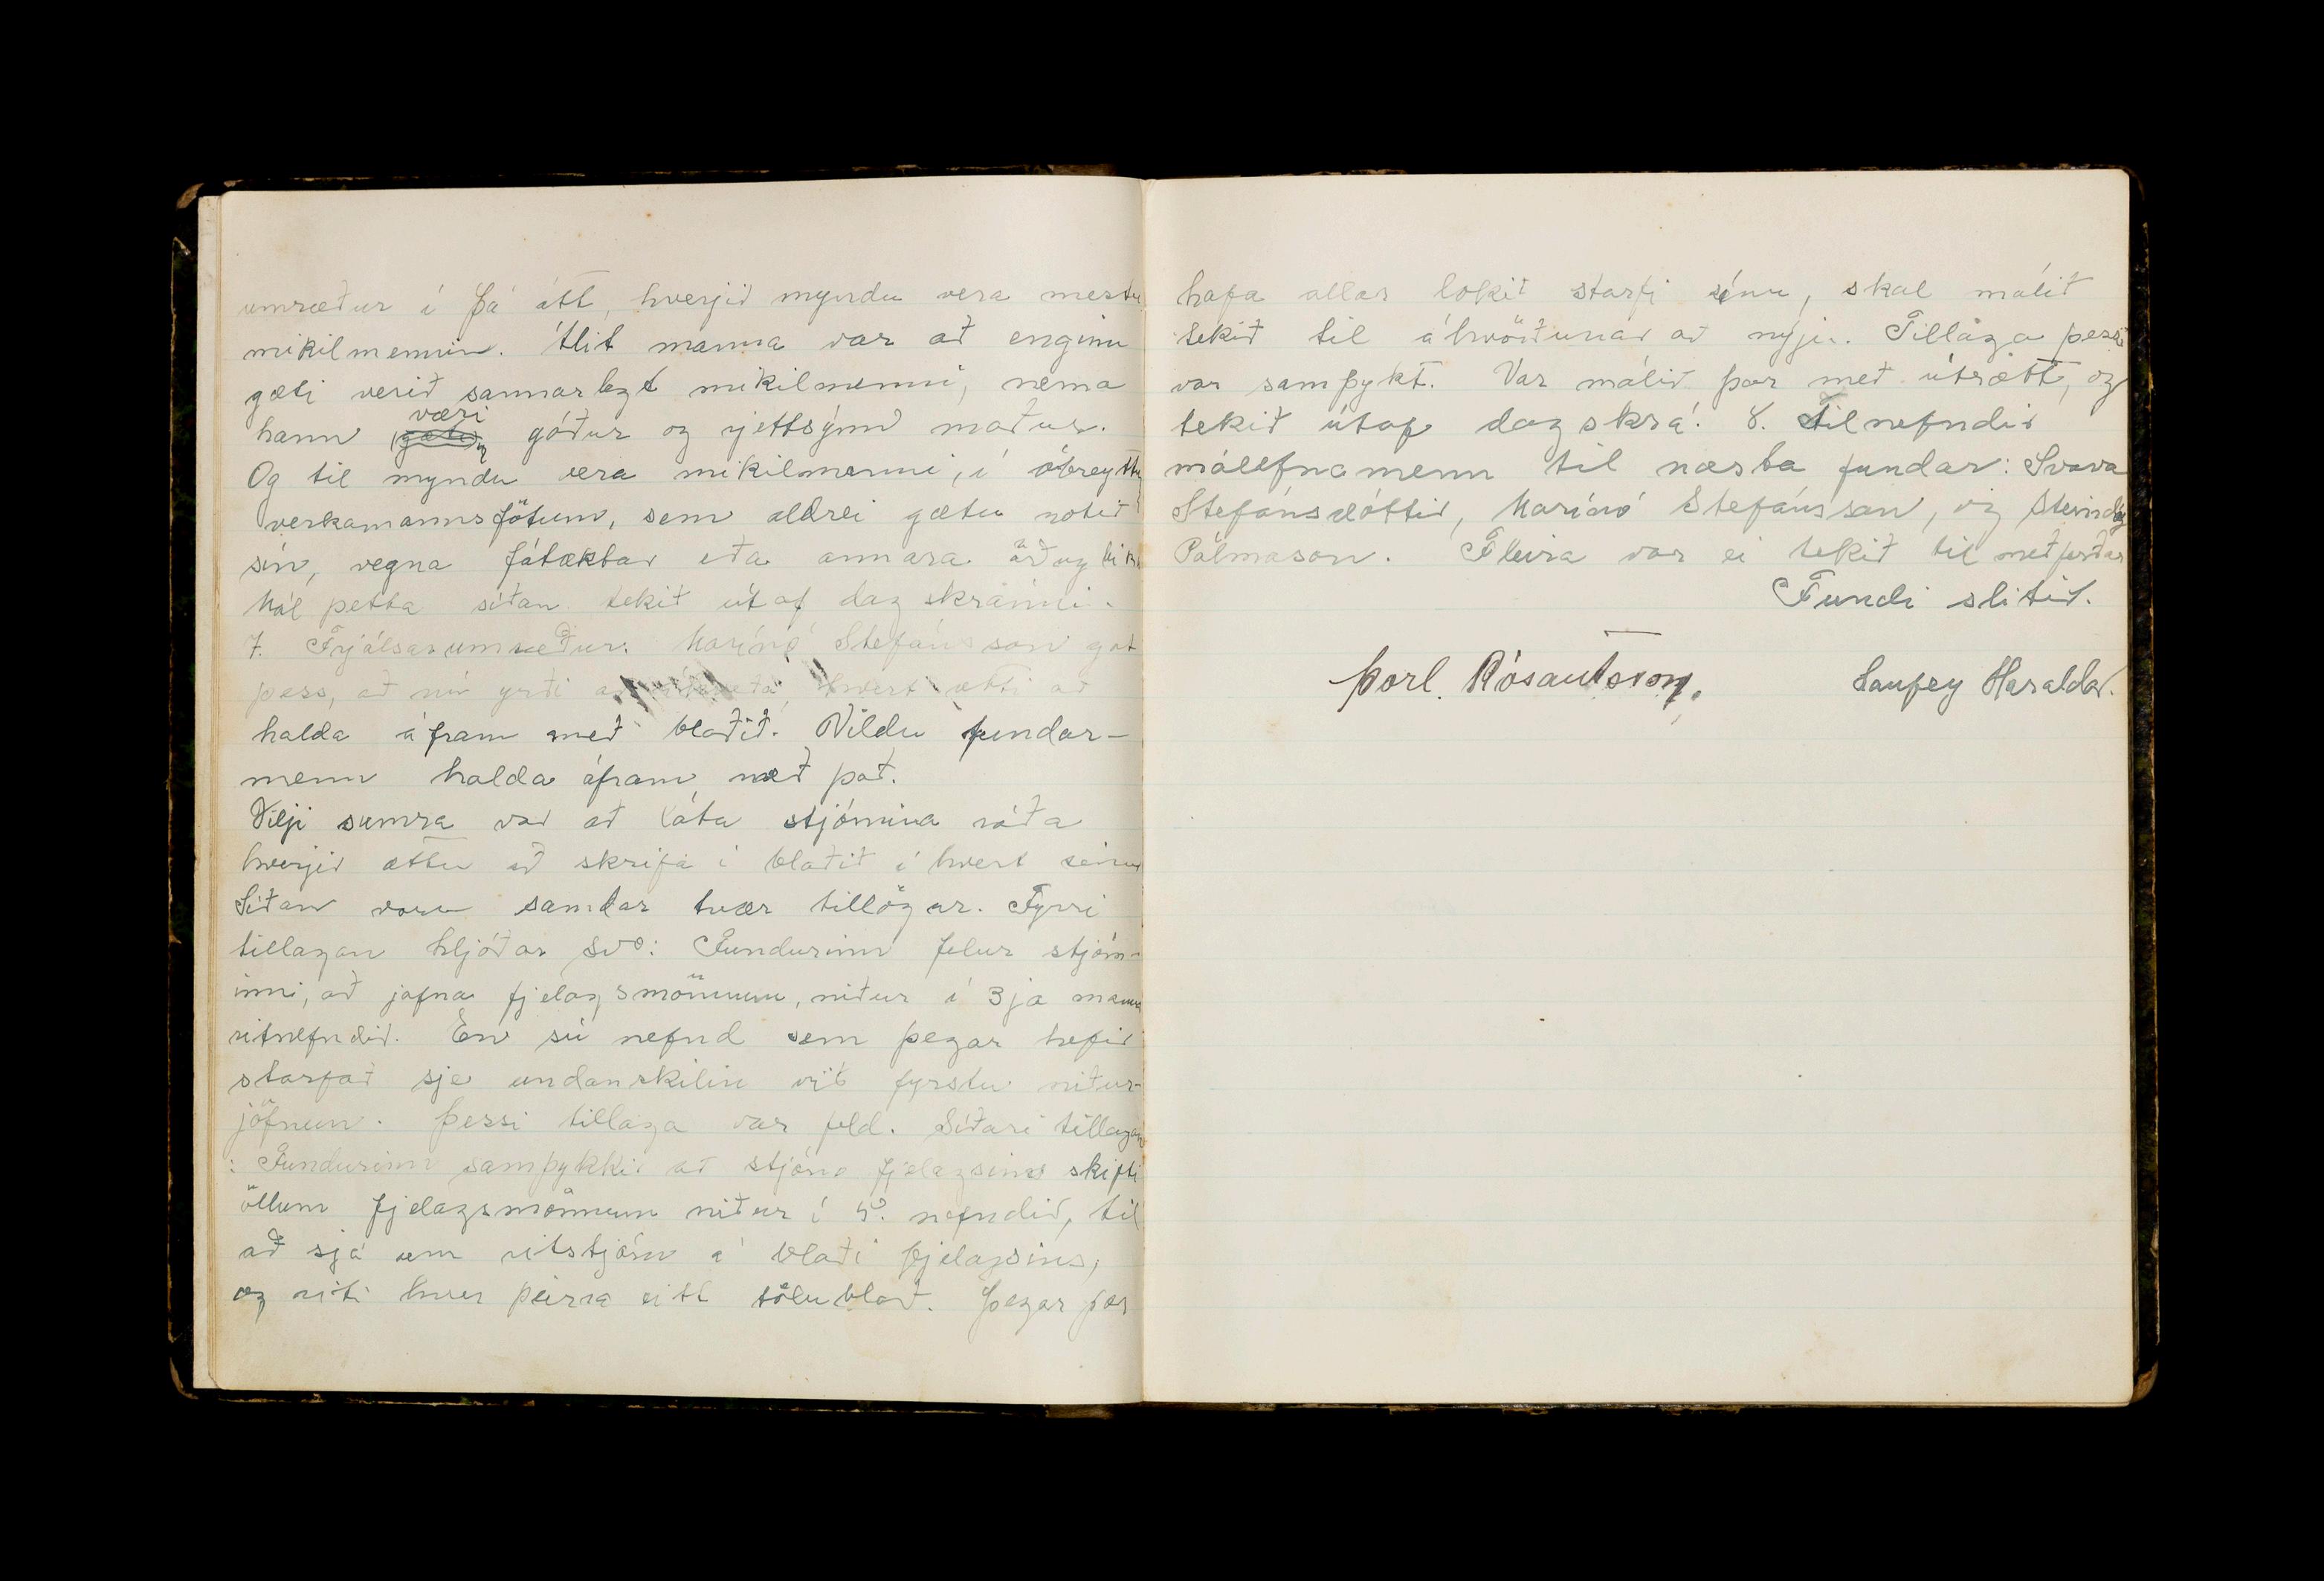 umræður í þá átt, hverjir myndu vera mestu
mikilmennin. Álit manna var að enginn
gæti verið sannarlegt mikilmenni, nema
hann væri góður og rjettsýnn maður.
Og til myndu vera mikilmenni, í óbreyttu
verkamannsfötum, sem aldrei gætu notið
sín, vegna fátæktar eða annara örðugleika
Mál þetta síðan tekið út af dagskránni.
7. Frjálsar umræður. Marínó Stefánsson gat
þess, að nú yrði að hvert ætti að
halda áfram með blaðið. Vildu fundar-
menn halda áfram með það.
Vilji sumra var að láta stjórnina ráða
hverjir ættu að skrifa í blaðið í hvert sinn
Síðan voru samdar tvær tillögur. Fyrri
tillagan hljóðar svo: Fundurinn felur stjórn-
inni, að jafna fjelagsmönnum, niður í 3ja manna
ritnefndir. En sú nefnd sem þegar hefir
starfað sje undanskilin við fyrstu niður-
jöfnun. Þessi tillaga var feld. Síðari tillagan
: Fundurinn samþykkir að stjórn fjelagsins skifti
öllum fjelagsmönnum niður í 5. nefndir, til
að sjá um ritstjórn á blaði fjelagsins,
og riti hver þeirra eitt tölublað. Þegar þær
hafa allar lokið starfi sínu, skal málið
tekið til ákvörðunar að nýju. Tillaga þessi
var samþykt. Var málið þar með útrætt, og
tekið útaf dagskrá. 8. Tilnefndir
málefnamenn til næsta fundar: Svava
Stefánsdóttir, Marínó Stefánsson, og Steindór
Pálmason. Fleira var ei tekið til meðferðar
Fundi slitið.
Þorl. Rósantsson. Laufey Haraldsd.